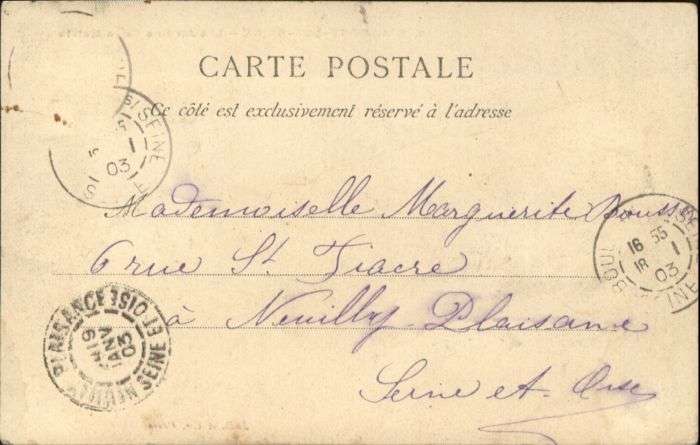 CARTE POSTALE
Ce côté est exclusivement réservé à l'adresse
S/SEINE
1
03
Mademoiselle Marguerite Rousse
6 rue St Fiacre
à Neuilly Plaisance
Seine et Oise
16 35
18 1
03
PLAISANCE
SEINE ET OISE
19
JANV
03